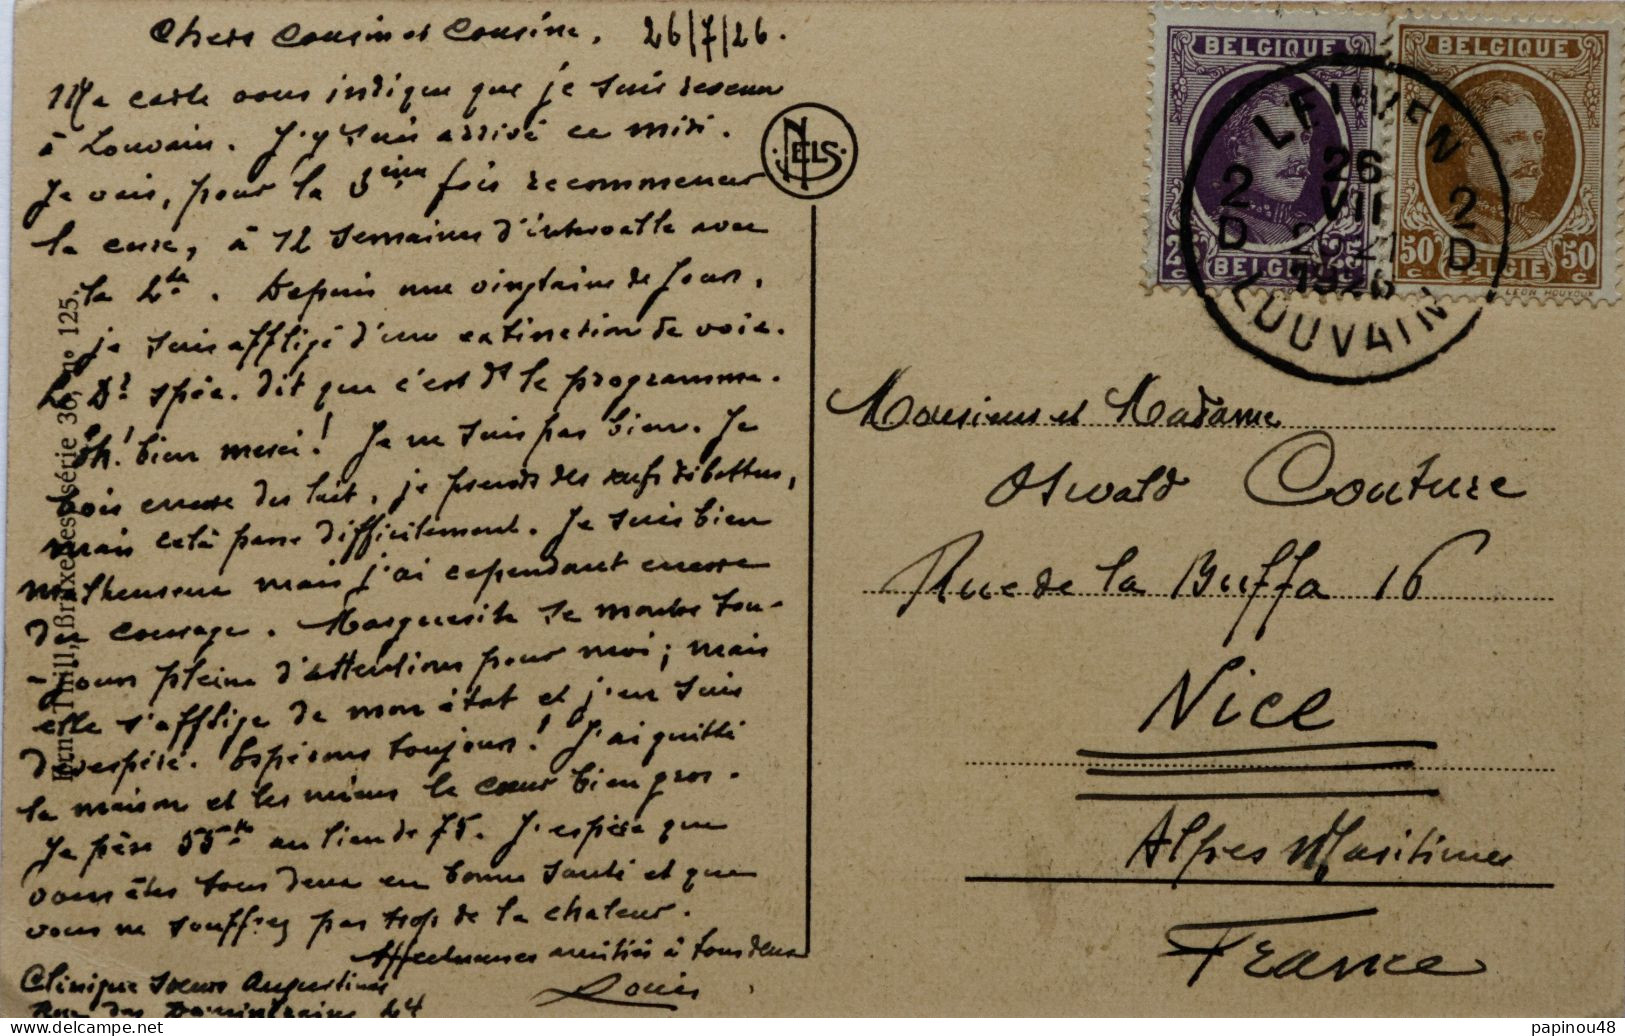 Chers Cousin et Cousine. 26/7/26.
Ma carte vous indique que je suis revenu
à Louvain. J'y suis arrivé ce midi.
Je vais, pour la 3ème fois recommencer
la cure, à 12 semaines d'intervalle avec
la 2de. Depuis une vingtaine de jours,
je suis affligé d'une extinction de voix.
Le Dr spéc. dit que c'est ds le programme.
Eh! bien merci! Je ne suis pas bien. Je
bois encore du lait, je prends des œufs battus,
mais cela passe difficilement. Je suis bien
malheureux mais j'ai cependant encore
du courage. Marguerite se montre tou-
-jours pleine d'attentions pour moi; mais
elle s'afflige de mon état et j'en suis
désespéré. Espérons toujours! J'ai quitté
la maison et les miens le cœur bien gros.
Je pèse 55 ks au lieu de 75. J'espère que
vous êtes tous deux en bonne santé et que
vous ne souffrez pas trop de la chaleur.
Affectueuses amitiés à tous deux
Louis
Clinique Sœurs Augustines
Rue des Dominicains 24
Ern. Thill, Bruxelles, série 36, no 125.
NELS
BELGIQUE
25 c 25 c
BELGIË
BELGIQUE
50 c 50 c
BELGIE
LEON HOUYOUX
LEUVEN
2 D 26 VII 2 D
1926
LOUVAIN
Monsieur et Madame
Oswald Couture
Rue de la Buffa 16
Nice
Alpes Maritimes
France
papinou48